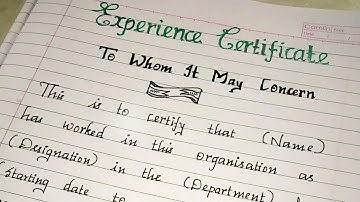 Experience Certificate
To Whom It May Concern
This is to certify that (Name)
has worked in this organisation as
(Designation) in the (Department)
(Starting date to